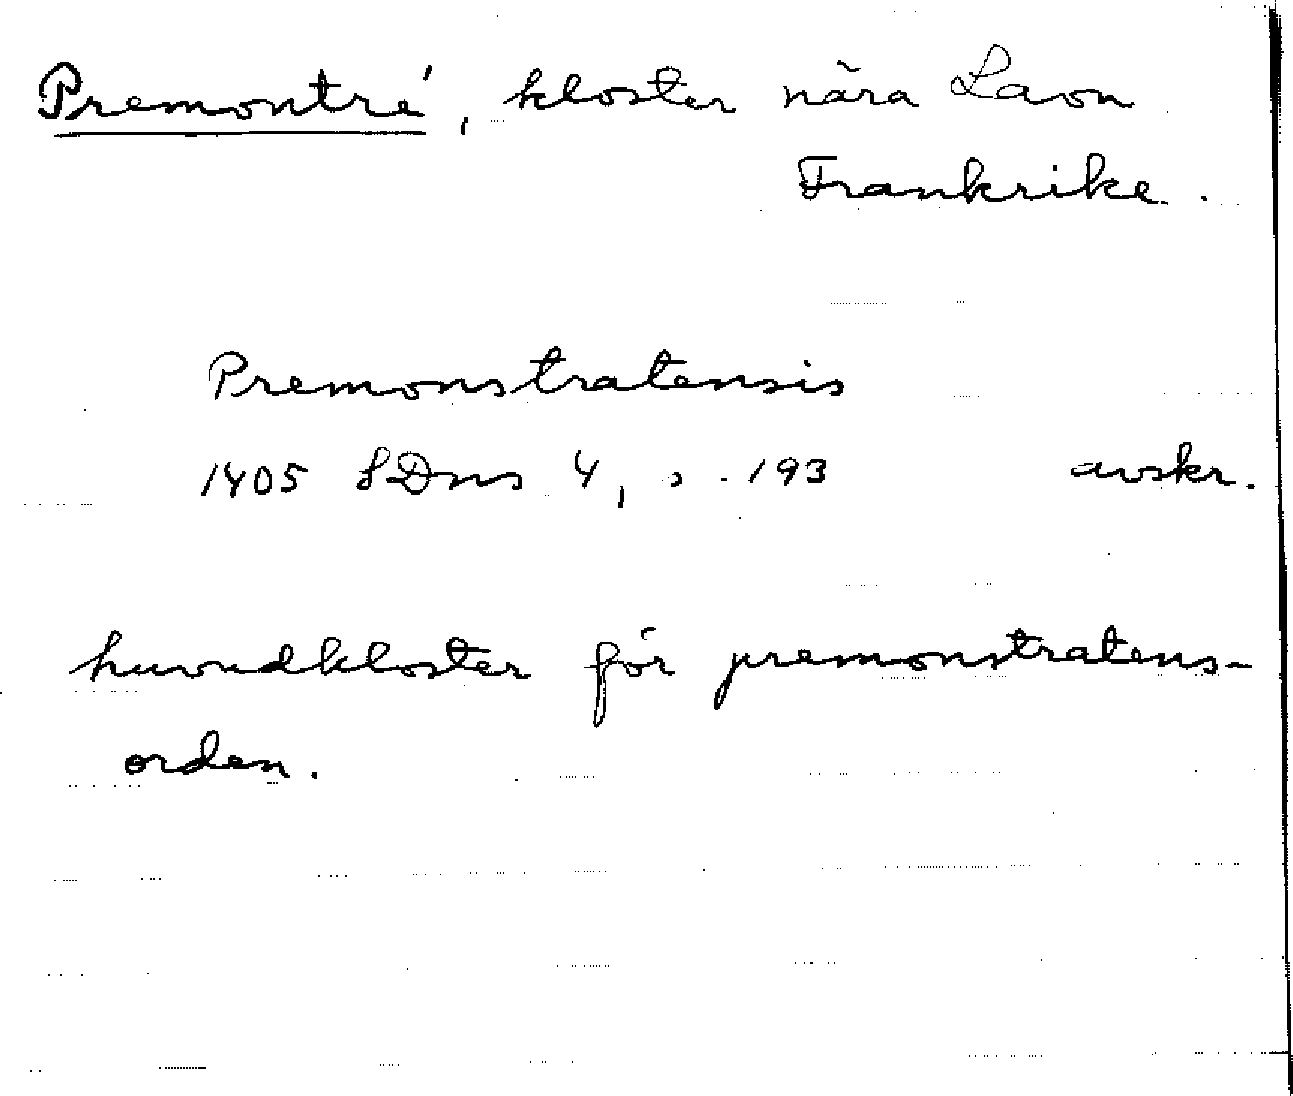 Premontré, kloster nära Laon
Frankrike.
Premonstratensis
1405 SDns 4, s. 193 avskr.
huvudkloster för premonstratens-
orden.